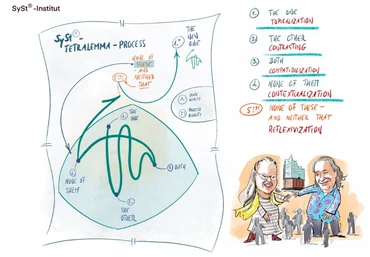 SySt®-Institut
SySt®-
TETRALEMMA - PROCESS
NONE OF
THESE -
AND NEITHER
THAT
5!?!
THE
NEW
ONE
1.
THE
ONE
3. BOTH
4.
NONE OF
THEM
2.
THE
OTHER
1. THE ONE
TOPICALIZATION
2. THE OTHER
CONTRASTING
3. BOTH
4. NONE OF THEM
CONTEXTUALIZATION
5!?! NONE OF THESE -
AND NEITHER THAT
REFLEXIVIZATION